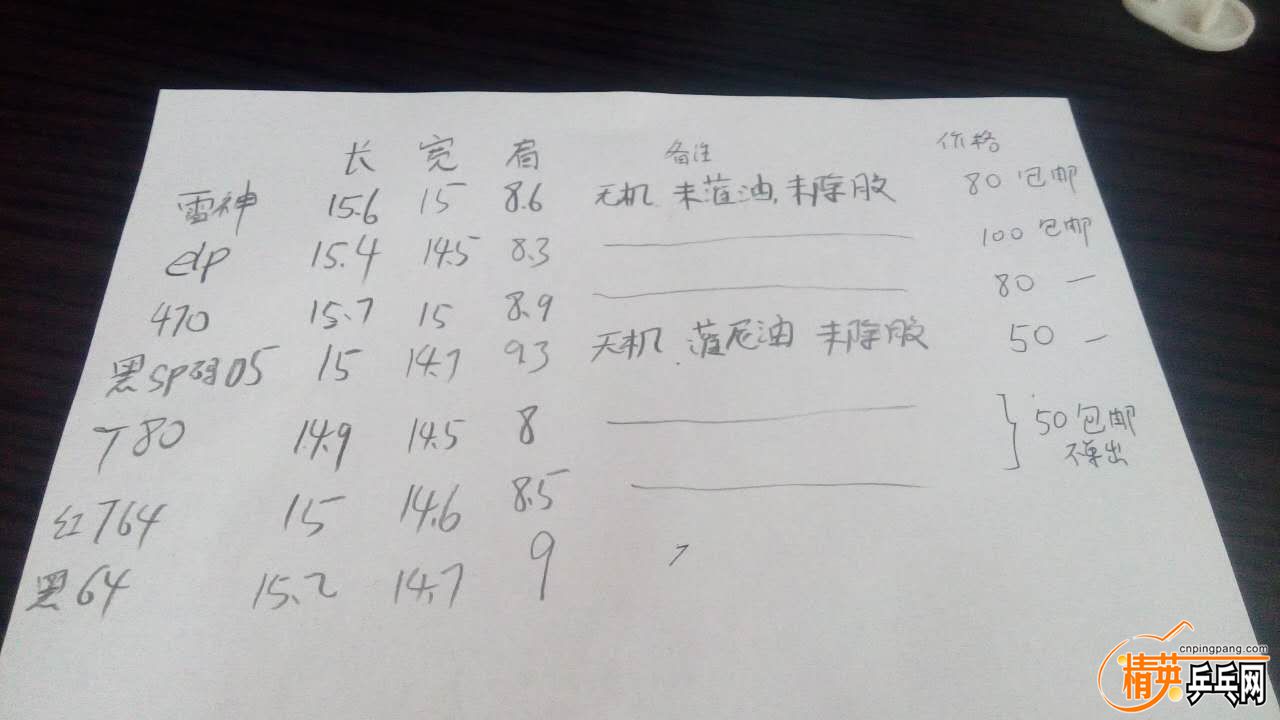 长 宽 肩 备注 价格
雷神 15.6 15 8.6 无机 未灌油, 未除胶 80 包邮
dp 15.4 14.5 8.3 100 包邮
470 15.7 15 8.9 80 —
黑SP码05 15 14.7 93 无机 灌尼油 未除胶 50 —
T80 14.9 14.5 8 50包邮
不单出
红T64 15 14.6 8.5
黑64 15.2 14.7 9
cnpingpang.com
精英乒乓网